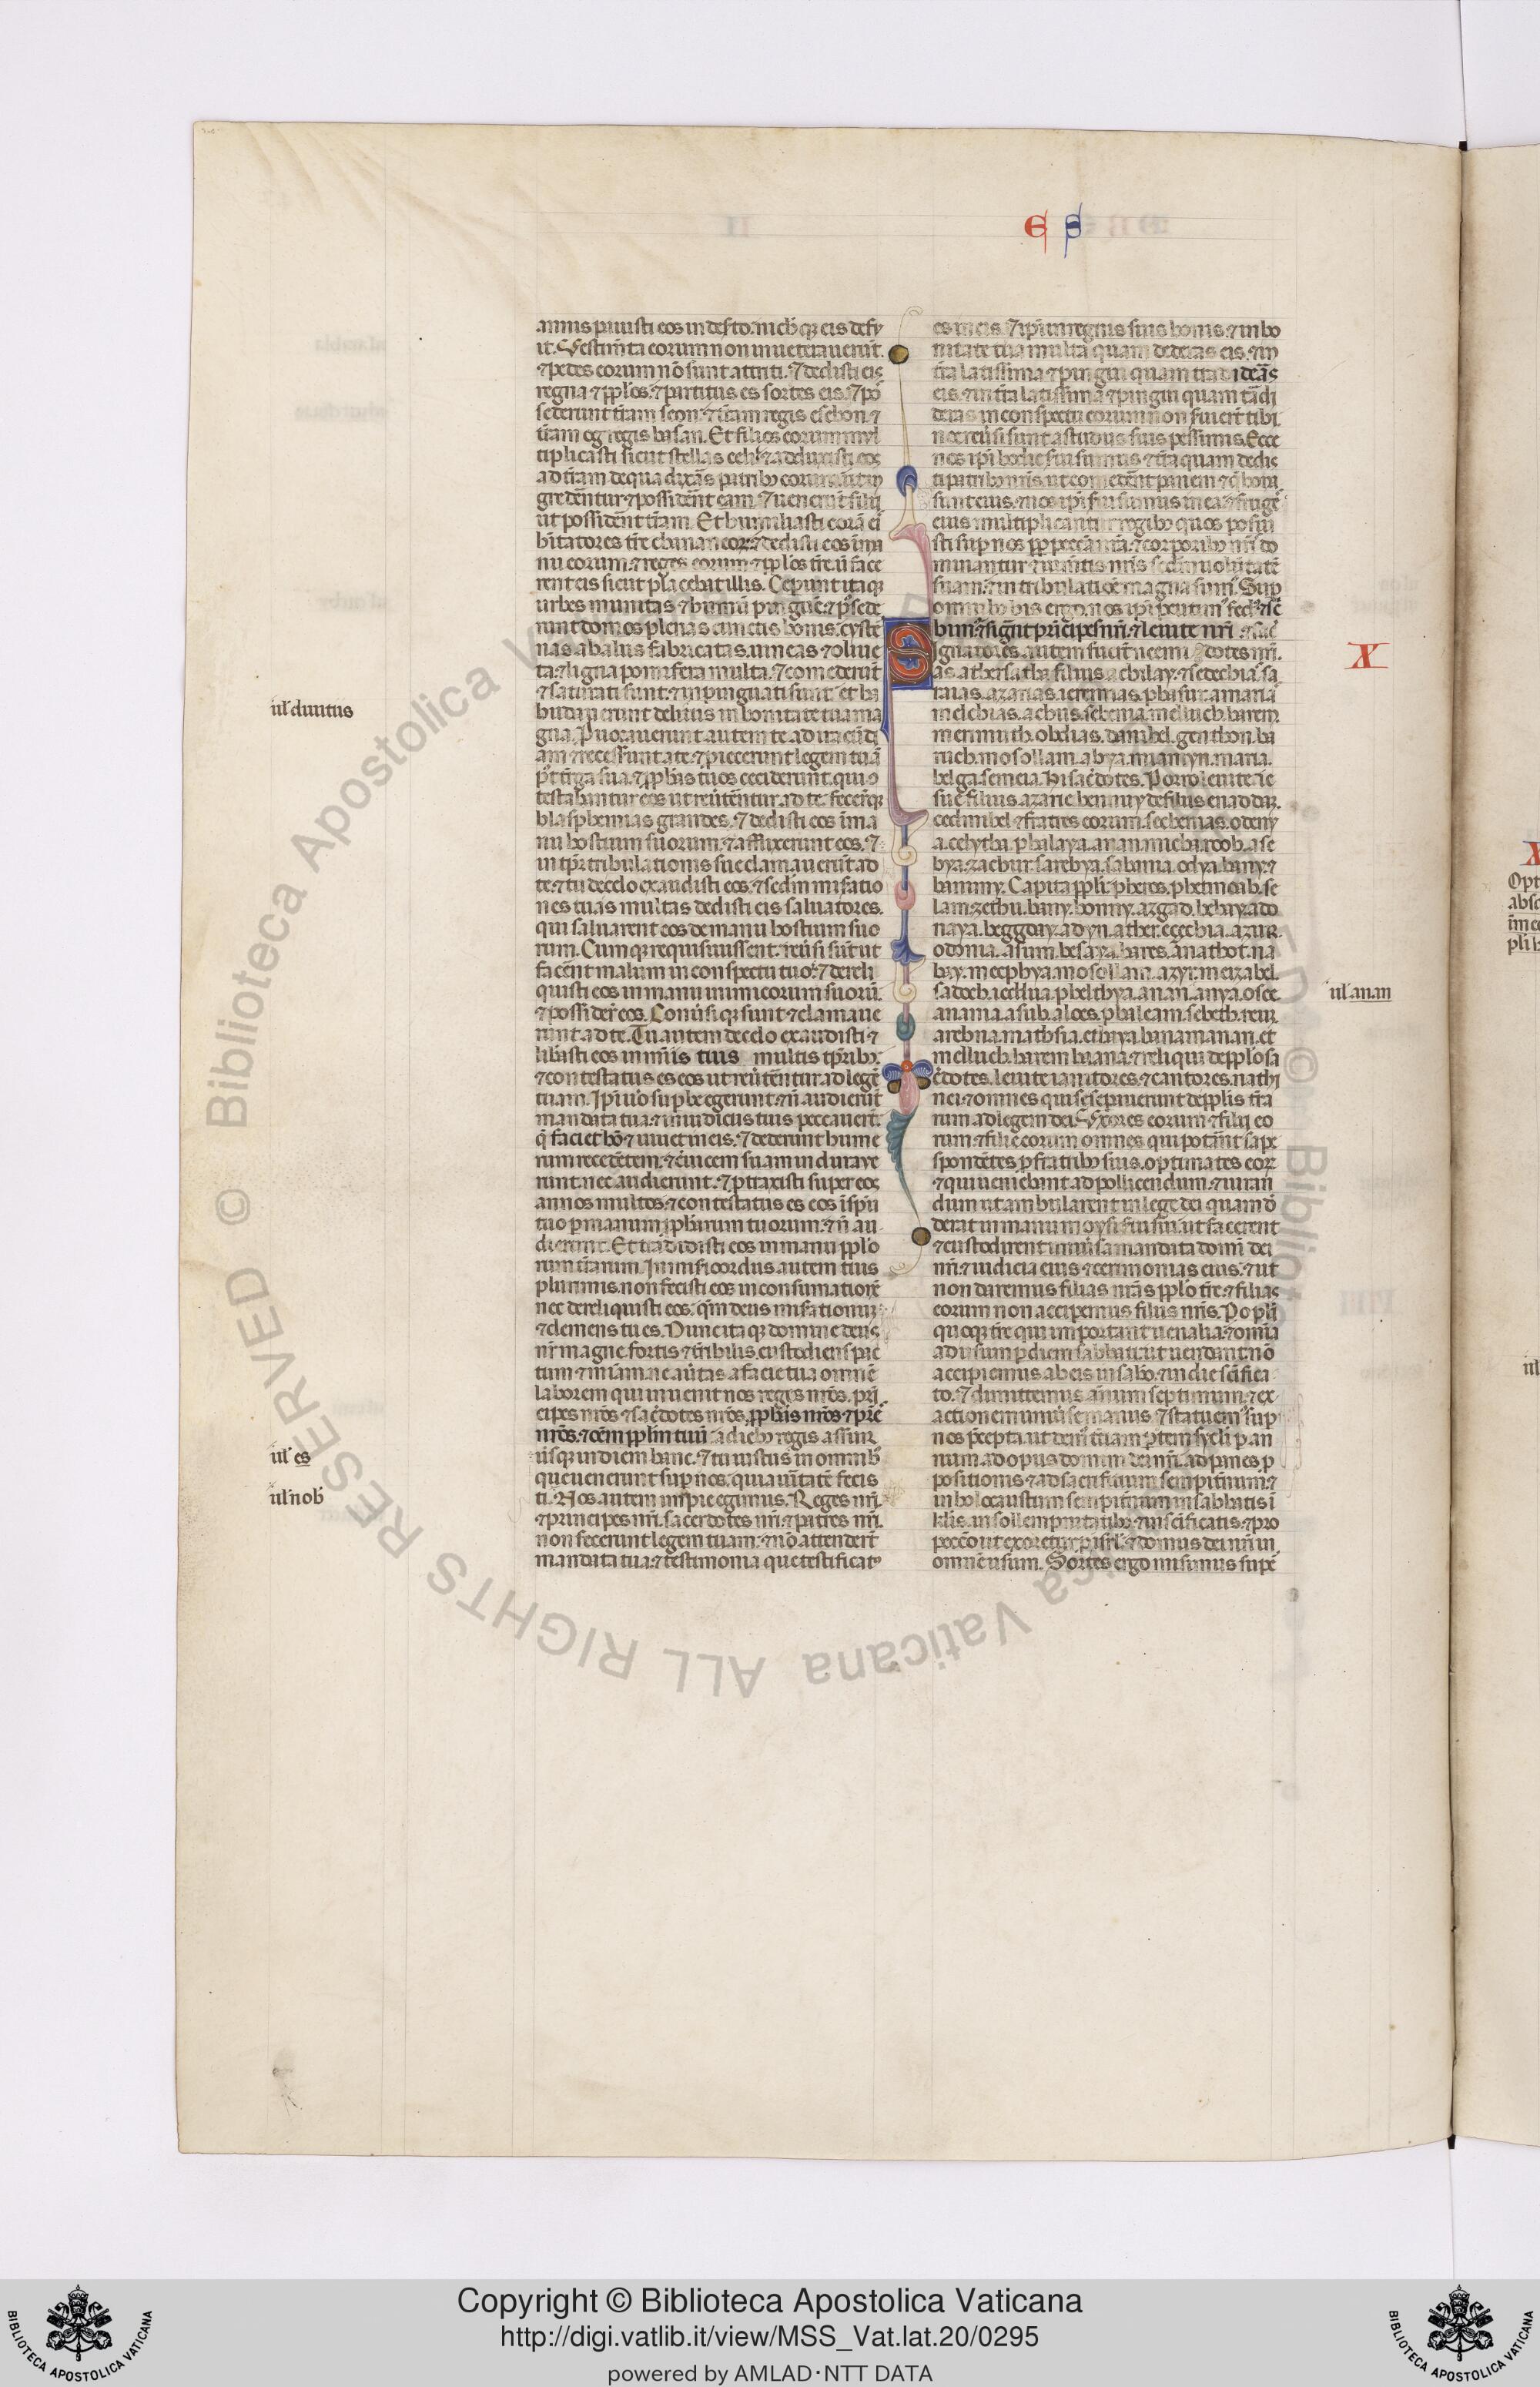 E S
annis pauisti eos in deſto. nichilq; eis defu
it. Veſtimẽta eorum non inueterauerũt.
⁊ pedes eorum nõ sunt attriti. ⁊ dedisti eis
regna ⁊ pp̃los. ⁊ partitus es sortes eis. ⁊ pos
sederunt tr̃am seon. ⁊ tr̃am regis esebon. ⁊
tr̃am og regis basan. Et filios eorum mul
tiplicasti sicut stellas celi. ⁊ adduxisti eos
ad tr̃am de qua dixas̃ patribȝ eorum ut in
gredẽntur ⁊ possidẽnt eam. ⁊ uenerũt filij
ut possidẽnt tr̃am. Et humiliasti corã eis
hĩtatores tr̃e chananeor. ⁊ dedisti eos in ma
nu eorum. ⁊ reges eorum ⁊ pp̃los tr̃e. ut face
rent eis sicut placebat illis. Ceperunt itaq;
urbes munitas ⁊ humũ pinguẽ. ⁊ possede
runt domos plenas cunctis bonis. cyster
nas ab aliis fabricatas. uineas ⁊ oliue
ta. ⁊ ligna pomifera multa. ⁊ comederunt
⁊ saturati sunt. ⁊ inpinguati sunt et ha
bundauerunt deliciis in bonitate tua ma
gna. Puocauerunt autem te ad iracũdi
am ⁊ recesserunt a te. ⁊ proiecerunt legem tuã
post t̃ga sua. ⁊ pp̃has tuos occiderunt. qui 9
testabantur eos ut reũtẽntur ad te. fecerũtq;
blasphemias grandes. ⁊ dedisti eos in ma
nu hostium suorum. ⁊ afflixerunt eos. ⁊
in tp̃r tribulationis sue clamauerũt ad
te. ⁊ tu de celo exaudisti eos. ⁊ sedm̃ misatio
nes tuas multas dedisti eis saluatores.
qui saluarent eos de manu hostium suo
rum. Cumq; requieuissent. reũsi sũt ut
facẽnt malum in conspectu tuo. ⁊ dereli
quisti eos in manu inimicorum suorũ.
⁊ possider̃ eos. Conũsiq; sunt ⁊ clamaue
runt ad te. Tu autem de celo exaudisti. ⁊
libasti eos in mĩis tuis multis tp̃ribȝ.
⁊ contestatus es eos ut reũtẽntur ad legẽ
tuam. Ip̃i uo superbe egerunt. ⁊ ñ audierũt
mandata tua. ⁊ in iudiciis tuis peccauerũt.
q̃ faciet hõ ⁊ uiuet in eis. ⁊ dederunt hume
rum recedẽtem. ⁊ ceruicem suam induraue
runt. nec audierunt. ⁊ ptraxisti super eos
annos multos. ⁊ contestatus es eos in sp̃u
tuo p manum pp̃harum tuorum. ⁊ ñ au
dierunt. Et tradidisti eos in manu pp̃lo
rum tr̃arum. In misericordiis autem tuis
plurimis. non fecisti eos in consumationẽ
nec dereliquisti eos. qm̃ deus misationũ
⁊ clemens tu es. Nunc itaq; domine deus
nr̃ magne fortis ⁊ tr̃ibilis. custodiens pac
tum ⁊ miam. ne aũtas a facie tua omnẽ
laborem qui inuenit nos reges nr̃os. pri
cipes nr̃os ⁊ sac̃dotes nr̃os. pp̃has nr̃os ⁊ pr̃es
nr̃os. ⁊ oẽm pp̃lm tuũ a diebȝ regis assur
usq; in diem hanc. ⁊ tu iustus in omnibȝ
que uenerunt sup nos. quia ũitatẽ fecis
ti. Nos autem impie egimus. Reges nr̃i.
⁊ principes nr̃i. sacerdotes nr̃i. ⁊ patres nr̃i.
non fecerunt legem tuam. ⁊ nõ attenderũt
mandata tua. ⁊ testimonia que testificatus
ul' diuitiis
ul' es
ul' nob'
es in eis. ⁊ ip̃i in regnis suis bonis. ⁊ in bo
nitate tua multa quam dederas eis. ⁊ in
tr̃a latissima ⁊ pingui quam tradideras̃
eis. ⁊ in tr̃a latissima ⁊ pingui quam tradi
deras in conspectu eorum non seruierũt tibi.
nec reũsi sunt a studiis suis pessimis. Ecce
nos ip̃i hodie serui sumus. ⁊ tr̃a quam dedis
ti patribȝ nr̃is. ut comedẽnt panem ⁊ q̃ bona
sunt eius. ⁊ nos ip̃i serui sumus in ea. ⁊ fruges
eius multiplicantur regibȝ quos posui
sti sup nos pp̃ peccata nr̃a. ⁊ corporibȝ nr̃i do
minantur ⁊ iumẽtis nr̃is sedm̃ uolũtatẽ
suam. ⁊ in tribulatiõe magna sumȝ. Sup
omnibȝ his ergo nos ip̃i pcutimȝ fedȝ. ⁊ sc̃
bimȝ. ⁊ signãt principes nr̃i. ⁊ leuite nr̃i. ⁊ sac̃
X
Signatores autem fuer̃t neemi dotes nr̃i.
as. athersatha filius achilay. ⁊ sedechias. sa
raias. azarias. ieremias. phasur. amaria
melchias. achus. sebenia. melluch. harem
merimuth. obdias. danihel. genthon. ba
ruch. mosollam. abya. miamyn. mazia.
belga. semeia. Hi sac̃dotes. Porro leuite. ie
sue filius azarie. bennuy de filiis enadad.
cedmihel ⁊ fratres eorum. secbenias. odeuy
a. celytha. phalaya. anan. micha. roob. ase
bya. zachur. sarebya. sabania. odya. bany. ⁊
baminu. Capita pp̃li. pheros. phetmoab. he
lam. zethu. bany. bonny. azgad. bebay. ado
naya. beggoay. adyn. ather. ezechia. azur.
odoma. asum. besaya. hares. anathot. na
bay. mecphya. mosollam. azyr. meizabel.
sadoch. ieddua. phelthya. anan. anya. osee.
ul' anan
anania. asub. aloes. phaleam. sebeth. reum.
arebna. mathsia. echaya. hanam. anan. et
melluch. harem. baana. ⁊ reliqui de pp̃lo sa
c̃dotes. leuite. ianitores. ⁊ cantores. nathi
nei. ⁊ omnes qui se separauerunt de pp̃lis tr̃a
rum ad legem dei. Uxores eorum ⁊ filij eo
rum. ⁊ filie eorum omnes qui poterãt sape
spondẽtes. p fratribȝ suis. optimates eorum
⁊ qui ueniebant ad pollicendum. ⁊ iuran
dum ut ambularent in lege dei quam de
derat in manu moysi serui sui. ut facerent
⁊ custodirent uniũsa mandata domini dei
nr̃i. ⁊ iudicia eius ⁊ cerimonias eius. ⁊ ut
non daremus filias nr̃as pp̃lo tr̃e. ⁊ filias
eorum non acciperemus filiis nr̃is. Popl̃i
quoq; tr̃e qui important uenalia ⁊ omia
ad usum p diem sabbati ut uendant. nõ
accipiemus ab eis in sabbȝ. ⁊ in die sc̃ifica
to. ⁊ dimittemus annum septimum. ⁊ ex
actionem uniũse manus. ⁊ statuemȝ sup
nos precepta. ut demȝ tr̃iam ptem sycli p an
num ad opus domini dei nr̃i. ad panes p
positionis ⁊ ad sacrificium sempit̃num. ⁊
in holocaustum sempiternum in sabbatis ĩ
kl̃is. in sollempnitatibȝ. ⁊ in sc̃ificatis. ⁊ pro
peccõ ut exoretur p isrl̃. ⁊ domus dei nr̃i in
omnẽ usum. Sortes ergo misimus supe
Biblioteca Apostolica Vaticana ALL RIGHTS RESERVED ©
Copyright © Biblioteca Apostolica Vaticana
http://digi.vatlib.it/view/MSS_Vat.lat.20/0295
powered by AMLAD·NTT DATA
BIBLIOTECA APOSTOLICA VATICANA
BIBLIOTECA APOSTOLICA VATICANA